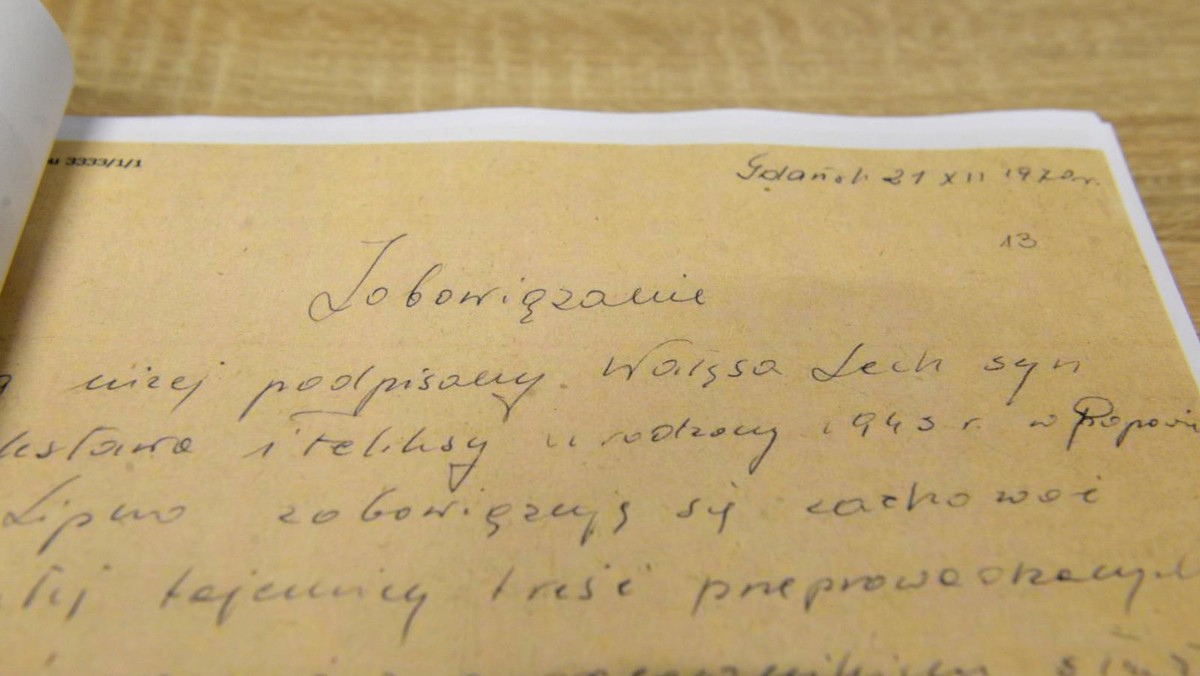 3333/1/1
Gdańsk 21 XII 1970r.
13
Zobowiązanie
niżej podpisany Wałęsa Lech syn
i Feliksy urodzony 1943 r. w Popowie
Lipno zobowiązuję się zachować
tajemnicy treść przeprowadzonych